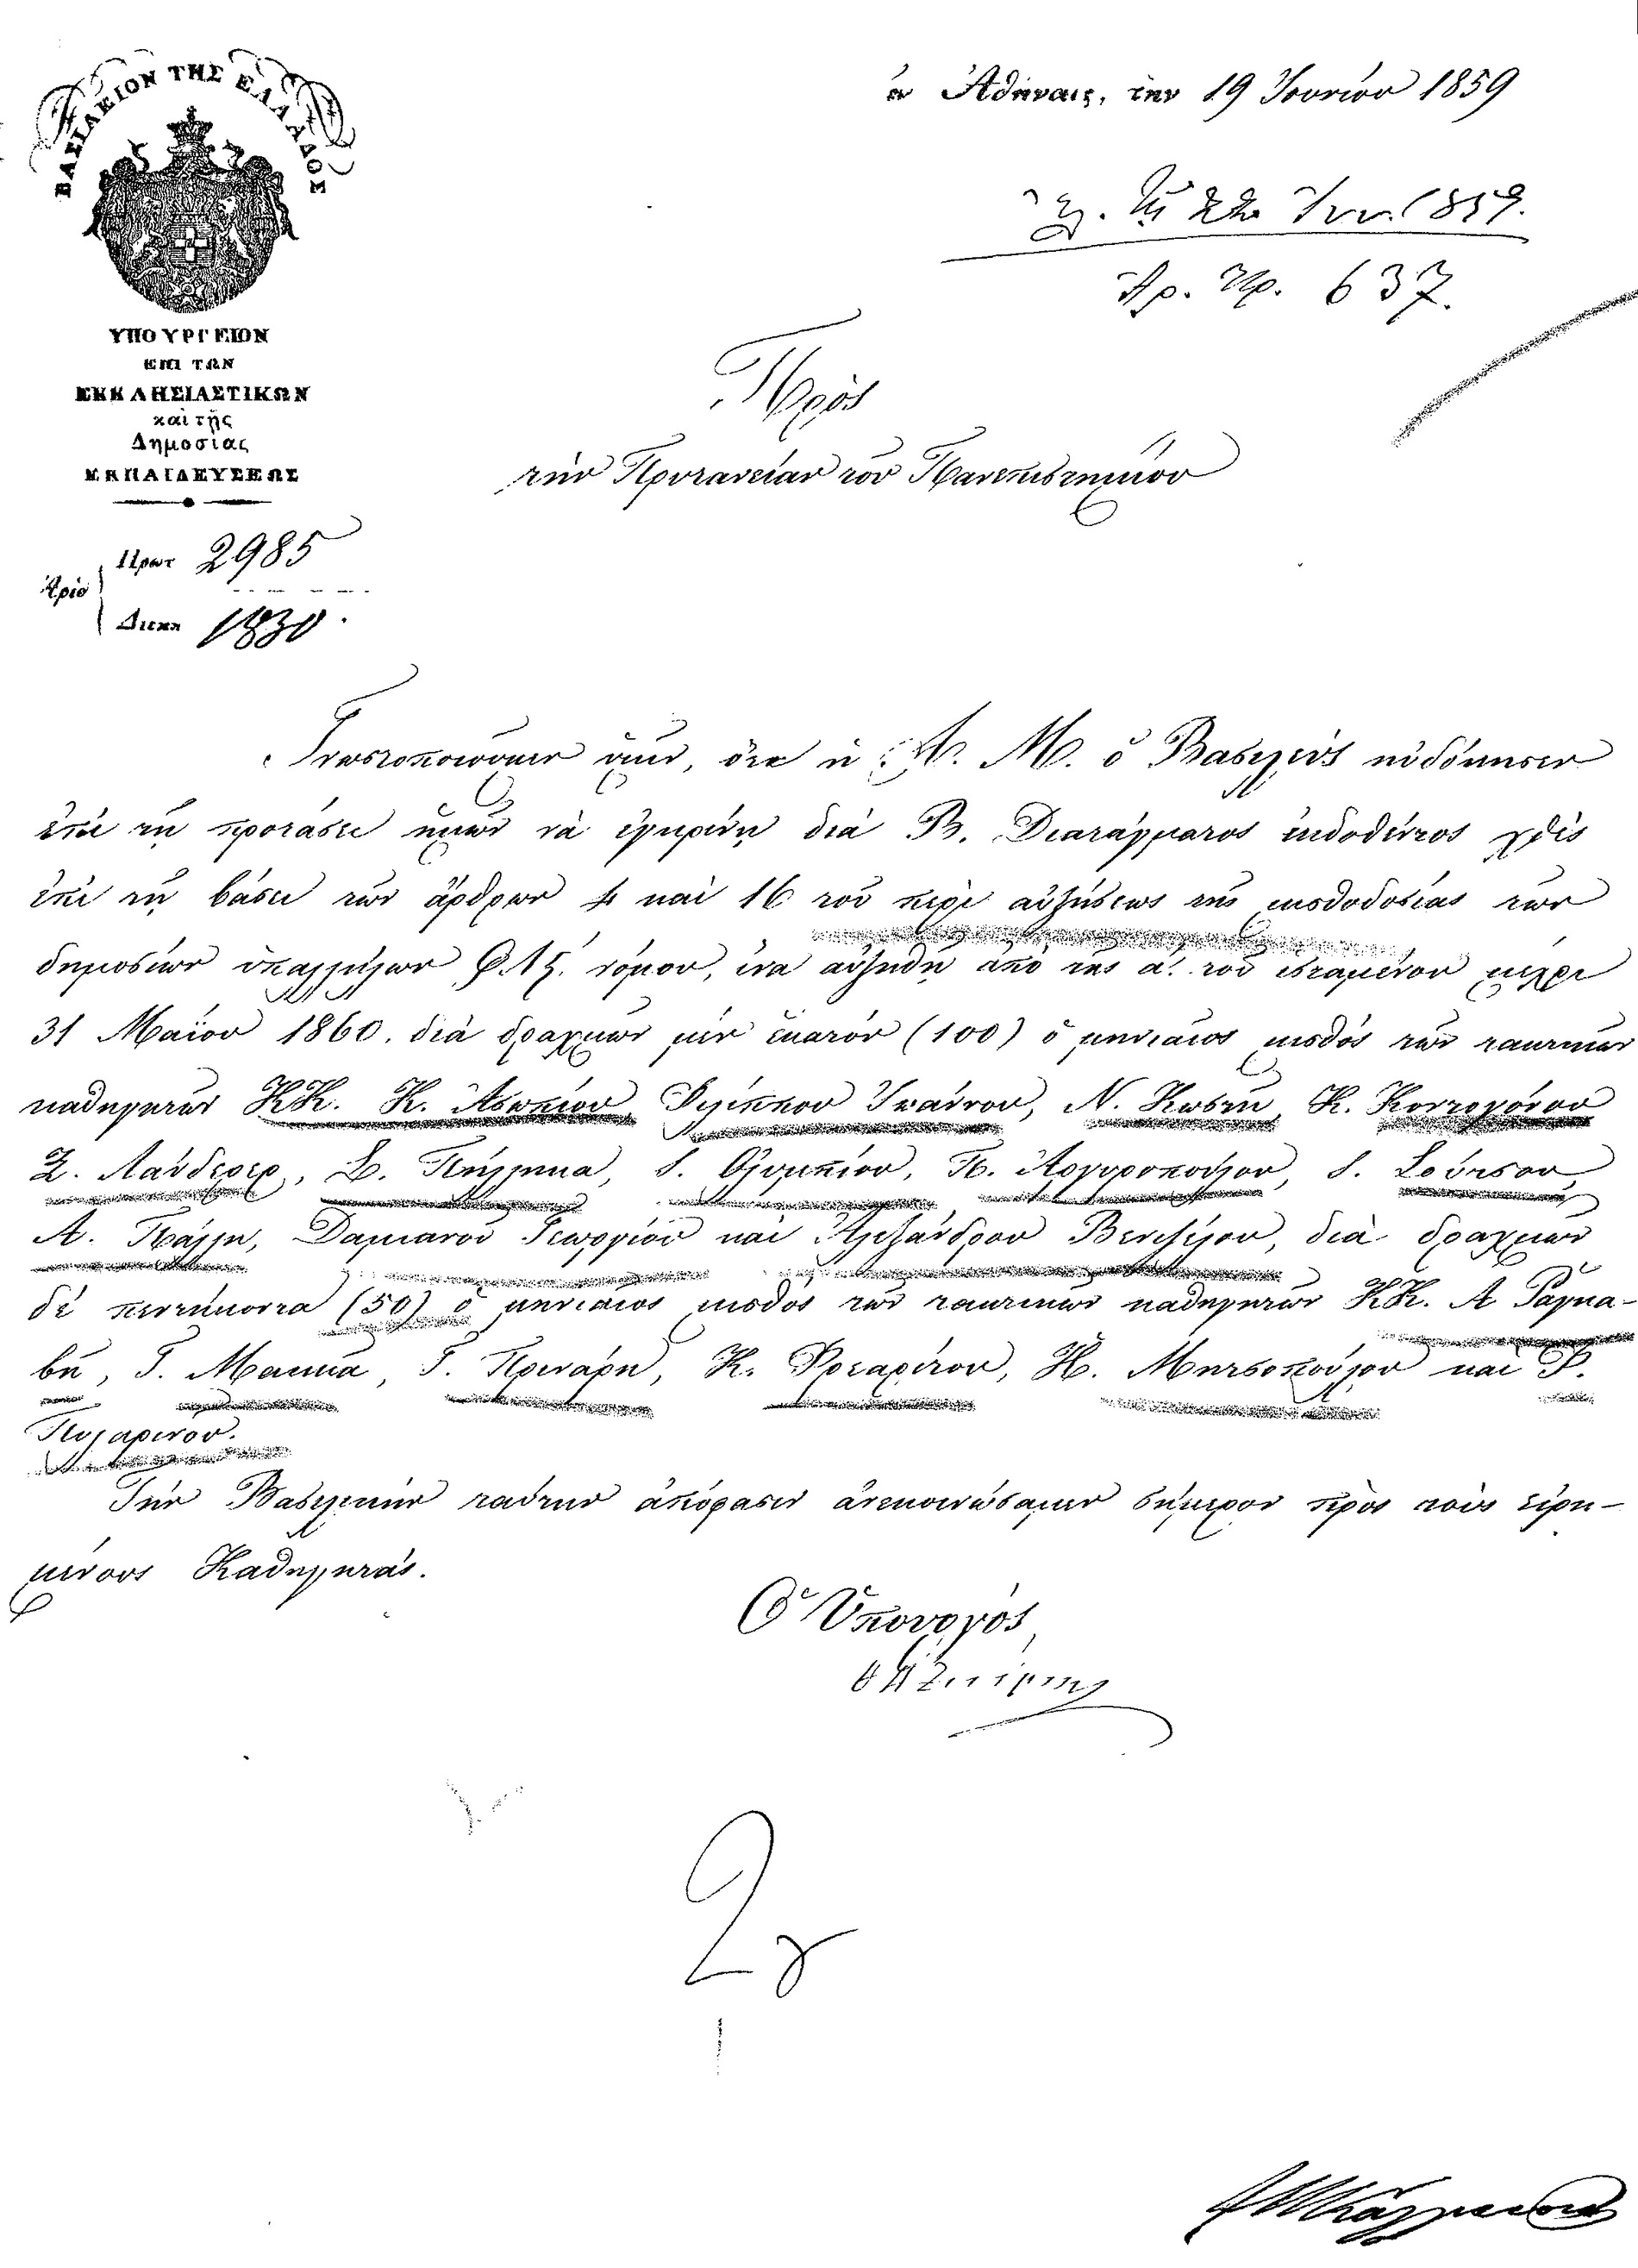 ΒΑΣΙΛΕΙΟΝ ΤΗΣ ΕΛΛΑΔΟΣ
ΥΠΟΥΡΓΕΙΟΝ
ΕΠΙ ΤΩΝ
ΕΚΚΛΗΣΙΑΣΤΙΚΩΝ
καὶ τῆς
Δημοσίας
ΕΚΠΑΙΔΕΥΣΕΩΣ
Ἀριθ
Πρωτ 2985
Διεκπ 1830.
ἐν Ἀθήναις, την 19 Ἰουνίου 1859
τῇ 22 Ἰουν. 1859.
Ἀρ. Πρ. 637.
Πρὸς
τὴν Πρυτανείαν τοῦ Πανεπιστημίου
Γνωστοποιοῦμεν ὑμῖν, ὅτι ἡ Α. Μ. ὁ Βασιλεὺς ηὐδόκησεν
ἐπὶ τῇ προτάσει ἡμῶν νὰ ἐγκρίνῃ διὰ Β. Διατάγματος ἐκδοθέντος χθὲς
ἐπὶ τῇ βάσει τῶν ἄρθρων 4 καὶ 16 τοῦ περὶ αὐξήσεως τῆς μισθοδοσίας τῶν
δημοσίων ὑπαλλήλων Φ.ΛΖ. νόμου, ἵνα αὐξηθῇ ἀπὸ τῆς α. τοῦ ἱσταμένου μέχρι
31 Μαΐου 1860. διὰ δραχμῶν μὲν ἑκατὸν (100) ὁ μηνιαῖος μισθὸς τῶν τακτικῶν
καθηγητῶν ΚΚ. Κ. Ἀσωπίου, Φιλίππου Ἰωάννου, Ν. Κωστῆ, Κ. Κοντογόνου
Ξ. Λάνδερερ, Σ. Πήλληκα, Ι. Ὀλυμπίου, Π. Ἀργυροπούλου, Ι. Σούτσου,
Α. Πάλλη, Δαμιανοῦ Γεωργίου καὶ Ἀλεξάνδρου Βενιζέλου, διὰ δραχμῶν
δὲ πεντήκοντα (50) ὁ μηνιαῖος μισθὸς τῶν τακτικῶν καθηγητῶν ΚΚ. Α Ραγκα-
βῆ, Γ. Μακκᾶ, Γ. Πρινάρη, Κ. Φρεαρίτου, Η. Μητσοπούλου καὶ Ι.
Πυλαρινοῦ.
Τὴν Βασιλικὴν ταύτην ἀπόφασιν ἀνεκοινώσαμεν σήμερον πρὸς τοὺς εἰρη-
μένους Καθηγητάς.
Ὁ Ὑπουργὸς